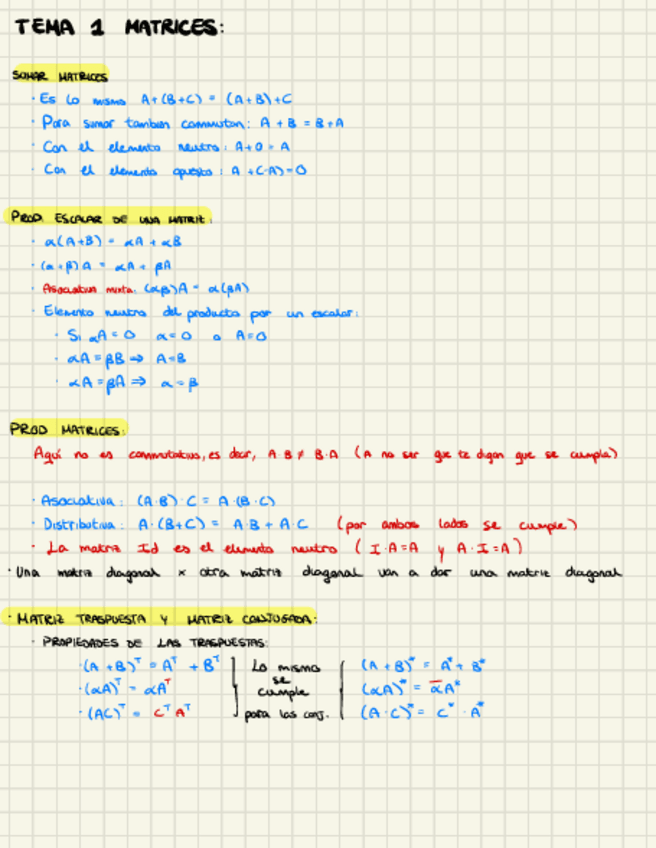 TEMA 1 MATRICES:
SUMAR MATRICES
· Es lo mismo A+(B+C) = (A+B)+C
· Para sumar tambien conmutan: A + B = B+A
· Con el elemento neutro: A+0 = A
· Con el elemento opuesto: A +(-A)=0
PROD. ESCALAR DE UNA MATRIZ:
· α(A+B) = αA + αB
· (α+β)A = αA + βA
· Asociativa mixta: (αβ)A = α(βA)
· Elemento neutro del producto por un escalar:
· Si αA = 0 α=0 o A=0
· αA = βB ⇒ A=B
· αA = βA ⇒ α = β
PROD MATRICES:
Aquí no es conmutativo, es decir, A·B ≠ B·A (A no ser que te digan que se cumpla)
· Asociativa: (A·B)·C = A·(B·C)
· Distributiva: A·(B+C) = A·B + A·C (por ambos lados se cumple)
· La matriz Id es el elemento neutro (I·A=A y A·I=A)
· Una matriz diagonal x otra matriz diagonal van a dar una matriz diagonal
· MATRIZ TRASPUESTA Y MATRIZ CONJUGADA:
· PROPIEDADES DE LAS TRASPUESTAS:
· (A + B)ᵀ = Aᵀ + Bᵀ
· (αA)ᵀ = αAᵀ
· (AC)ᵀ = CᵀAᵀ
Lo mismo
se
cumple
para las conj.
(A + B)* = A* + B*
(αA)* = ᾱA*
(A·C)* = C* · A*